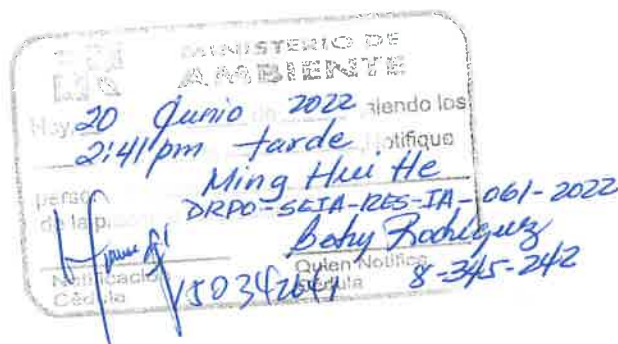 MINISTERIO DE
AMBIENTE
Hoy, 20 Junio de 2022 siendo los
2:41 pm tarde Notifique
person Ming Hui He
de la p DRPO-SEIA-RES-IA-061-2022
Betsy Rodríguez
Notificación Quien Notifica
Cédula Cédula 8-345-242